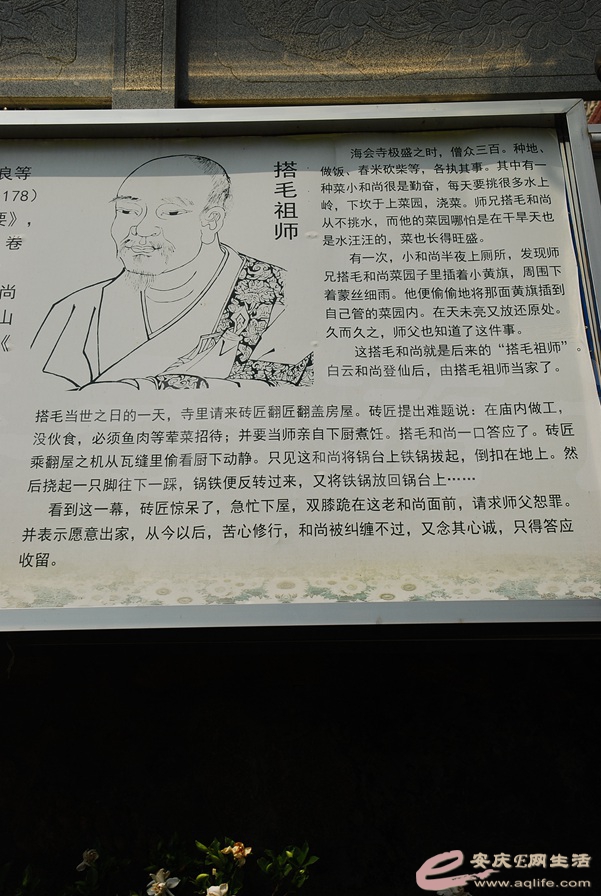 良等
178)
要》,
卷
尚
山
《
搭毛祖师
海会寺极盛之时，僧众三百。种地、
做饭、舂米砍柴等，各执其事。其中有一
种菜小和尚很是勤奋，每天要挑很多水上
岭，下坎于上菜园，浇菜。师兄搭毛和尚
从不挑水，而他的菜园哪怕是在干旱天也
是水汪汪的，菜也长得旺盛。
有一次，小和尚半夜上厕所，发现师
兄搭毛和尚菜园子里插着小黄旗，周围下
着蒙丝细雨。他便偷偷地将那面黄旗插到
自己管的菜园内。在天未亮又放还原处。
久而久之，师父也知道了这件事。
这搭毛和尚就是后来的“搭毛祖师”。
白云和尚登仙后，由搭毛祖师当家了。
搭毛当世之日的一天，寺里请来砖匠翻匠翻盖房屋。砖匠提出难题说：在庙内做工，
没伙食，必须鱼肉等荤菜招待；并要当师亲自下厨煮饪。搭毛和尚一口答应了。砖匠
乘翻屋之机从瓦缝里偷看厨下动静。只见这和尚将锅台上铁锅拔起，倒扣在地上。然
后挠起一只脚往下一踩，锅铁便反转过来，又将铁锅放回锅台上……
看到这一幕，砖匠惊呆了，急忙下屋，双膝跪在这老和尚面前，请求师父恕罪。
并表示愿意出家，从今以后，苦心修行，和尚被纠缠不过，又念其心诚，只得答应
收留。
安庆E网生活
www.aqlife.com